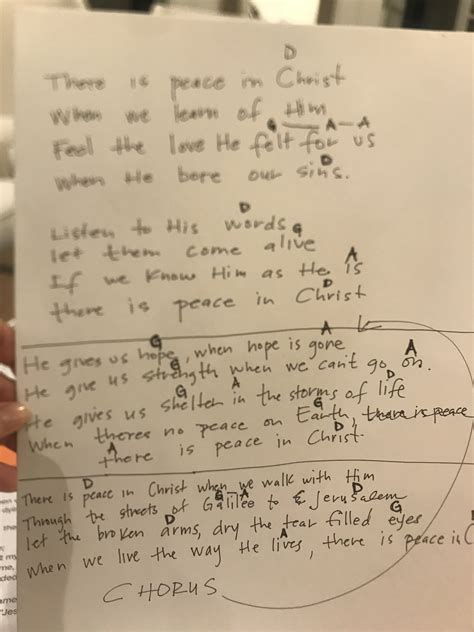 D
There is peace in Christ
When we learn of Him
G A-A
Feel the love He felt for us
D
When He bore our sins.
D
Listen to His words
G
let them come alive
A
If we know Him as He is
D
there is peace in Christ
G A
He gives us hope, when hope is gone
G A
He give us strength when we can't go on.
G A D
He gives us shelter in the storms of life
G
When theres no peace on Earth, there is peace
A D
there is peace in Christ.
D
There is peace in Christ when we walk with Him
G A D
Through the streets of Galilee to Jerusalem
G
let the broken arms, dry the tear filled eyes
D A
When we live the way He lives, there is peace in C
CHORUS